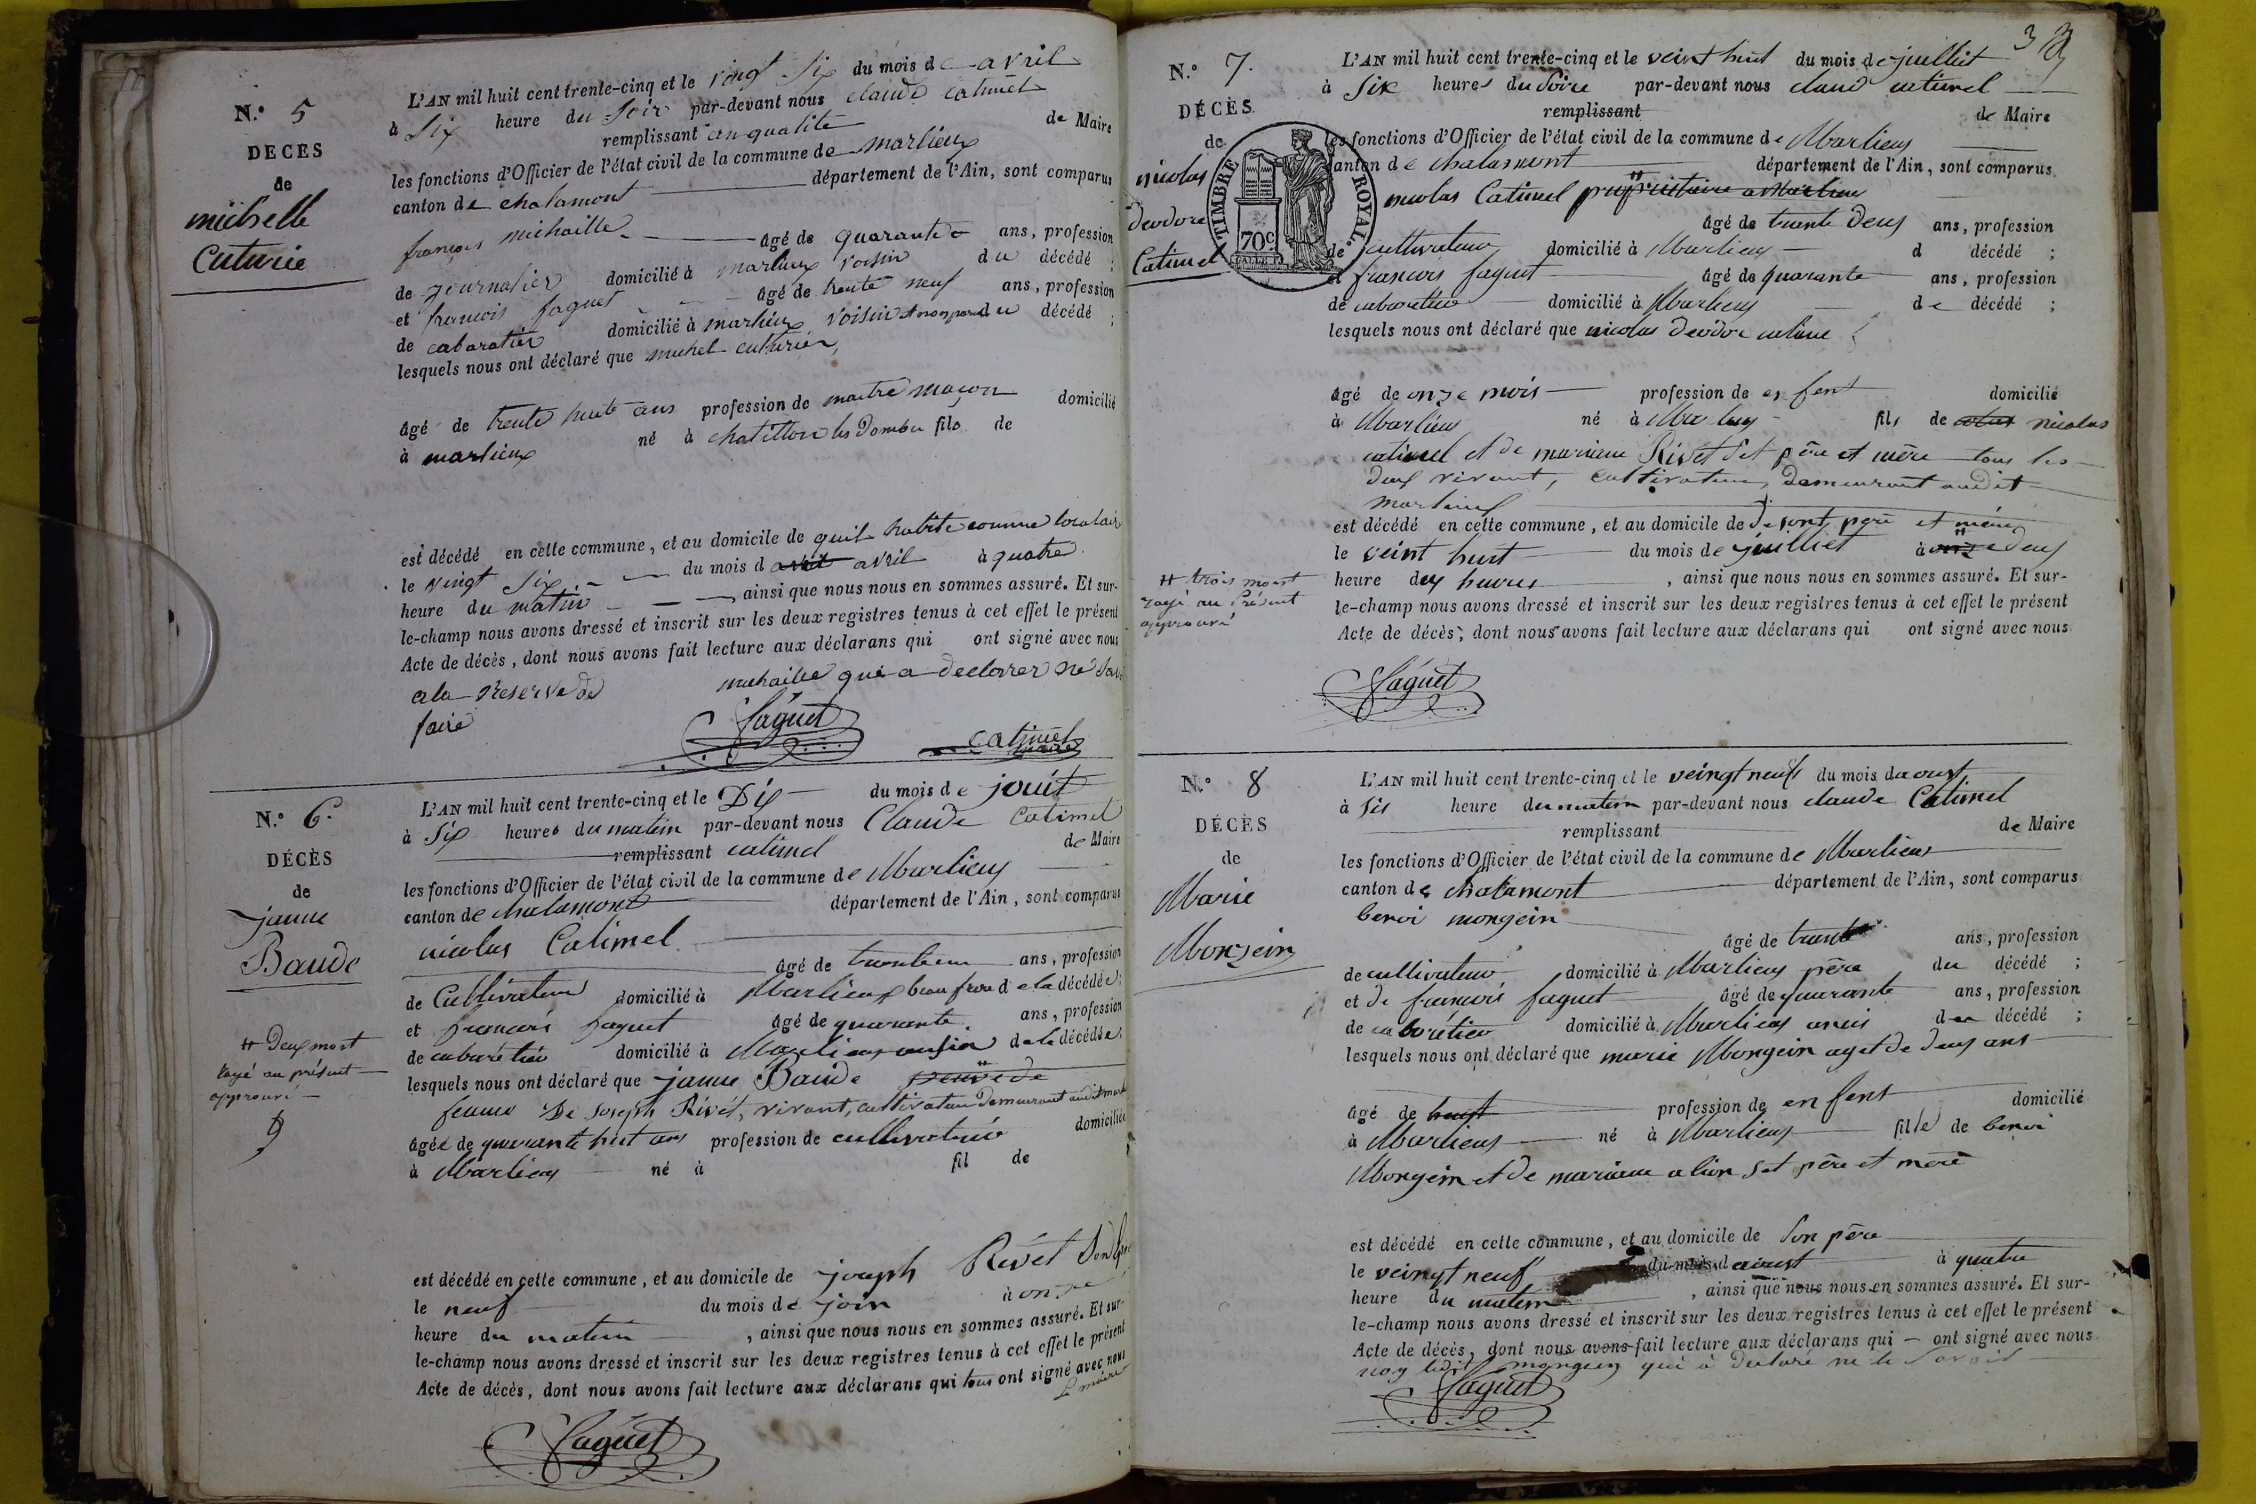 N.º 5
DÉCÈS
de
michelle
Cuturie
L'AN mil huit cent trente-cinq et le vingt six du mois de avril
à six heure du soir par-devant nous claude catimel
remplissant en qualité de Maire
les fonctions d'Officier de l'état civil de la commune de marlieux
canton de chalamont département de l'Ain, sont comparus
françois michaille âgé de quarante ans, profession
de journalier domicilié à marlieux voisin du décédé ;
et francois faguet âgé de trente neuf ans, profession
de cabaratier domicilié à marlieux voisin du décédé ;
lesquels nous ont déclaré que michel cuthurier
âgé de trente huit ans profession de maitre maçon domicilié
à marlieux né à chatillon les Dombes fils de
est décédé en cette commune, et au domicile de quil habite comme locataire
le vingt six du mois d avril avril à quatre
heure du matin ainsi que nous nous en sommes assuré. Et sur-
le-champ nous avons dressé et inscrit sur les deux registres tenus à cet effet le présent
Acte de décès, dont nous avons fait lecture aux déclarans qui ont signé avec nous
a la reserve de michaille qui a declarer ne
faire
faguet catimel
maire
N.º 6.
DÉCÈS
de
janne
Baude
# Deux mot
rayé au présent
approuvé
L'AN mil huit cent trente-cinq et le Dix du mois de jouit
à Six heures du matin par-devant nous Claude Catimel
remplissant catimel de Maire
les fonctions d'Officier de l'état civil de la commune de Marlieux
canton de chalamont département de l'Ain, sont comparus
nicolas Catimel
âgé de ans, profession
de Cultivateur domicilié à Marlieux beau de la décédée ;
et francois faguet âgé de quarante ans, profession
de cabarétier domicilié à Marlieux de la décédée ;
lesquels nous ont déclaré que janne Baude
femme De Joseph Rivét, vivant, cultivateur Demeurant
âgée de quarante huit ans profession de domiciliée
à Marlieux né à fil de
est décédé en cette commune, et au domicile de joseph Rivét Son
le neuf du mois de join à onze
heure du matin , ainsi que nous nous en sommes assuré. Et sur-
le-champ nous avons dressé et inscrit sur les deux registres tenus à cet effet le présent
Acte de décès, dont nous avons fait lecture aux déclarans qui tous ont signé avec nous
maire
faguet
N.º 7.
DÉCÈS
de
nicolas
deodore
Catimel
TIMBRE ROYAL.
70c
# trois mont
rayé au Présent
approuvé
L'AN mil huit cent trente-cinq et le veint huit du mois de juilliet
à Six heures du Soire par-devant nous claud catimel
remplissant de Maire
les fonctions d'Officier de l'état civil de la commune de Marlieux
canton de chalamont département de l'Ain, sont comparus
nicolas Catimel propriétaire a Marlieux
âgé de trente Deux ans, profession
de cultivateur domicilié à Marlieux d décédé ;
et francois faguet âgé de quarante ans, profession
de cabaretier domicilié à Marlieux de décédé ;
lesquels nous ont déclaré que nicolas deodore
âgé de onze mois profession de enfent domicilié
à Marlieux né à fils de nicolas
catimel et de marianne Rivét Set père et mère tous les
deux vivant, cultivateur demeurant audit
Marlieux
est décédé en cette commune, et au domicile de de sont père et mére
le veint huit du mois de juilliet à onze deux
heure , ainsi que nous nous en sommes assuré. Et sur-
le-champ nous avons dressé et inscrit sur les deux registres tenus à cet effet le présent
Acte de décès, dont nous avons fait lecture aux déclarans qui ont signé avec nous
faguet
N.º 8
DÉCÈS
de
Marie
Monjein
L'AN mil huit cent trente-cinq et le veingt neuf du mois daoust
à sis heure du matin par-devant nous claude Catimel
remplissant de Maire
les fonctions d'Officier de l'état civil de la commune de Marlieux
canton de chalamont département de l'Ain, sont comparus
benoi mongein
âgé de trente ans, profession
de cultivateur domicilié à Marlieux père du décédé ;
et de francois faguet âgé de quarante ans, profession
de cabarétier domicilié à Marlieux du décédé ;
lesquels nous ont déclaré que marie Mongein aget de deux ans
âgé de profession de enfent domicilié
à Marlieux né à Marlieux fille de benoi
Mongein et de marianne Set père et mère
est décédé en cette commune, et au domicile de Son père
le veingt neuf du mois d aoust à quatre
heure du matin , ainsi que nous nous en sommes assuré. Et sur-
le-champ nous avons dressé et inscrit sur les deux registres tenus à cet effet le présent
Acte de décès, dont nous avons fait lecture aux déclarans qui ont signé avec nous
qui à declaré ne le Savoir
faguet